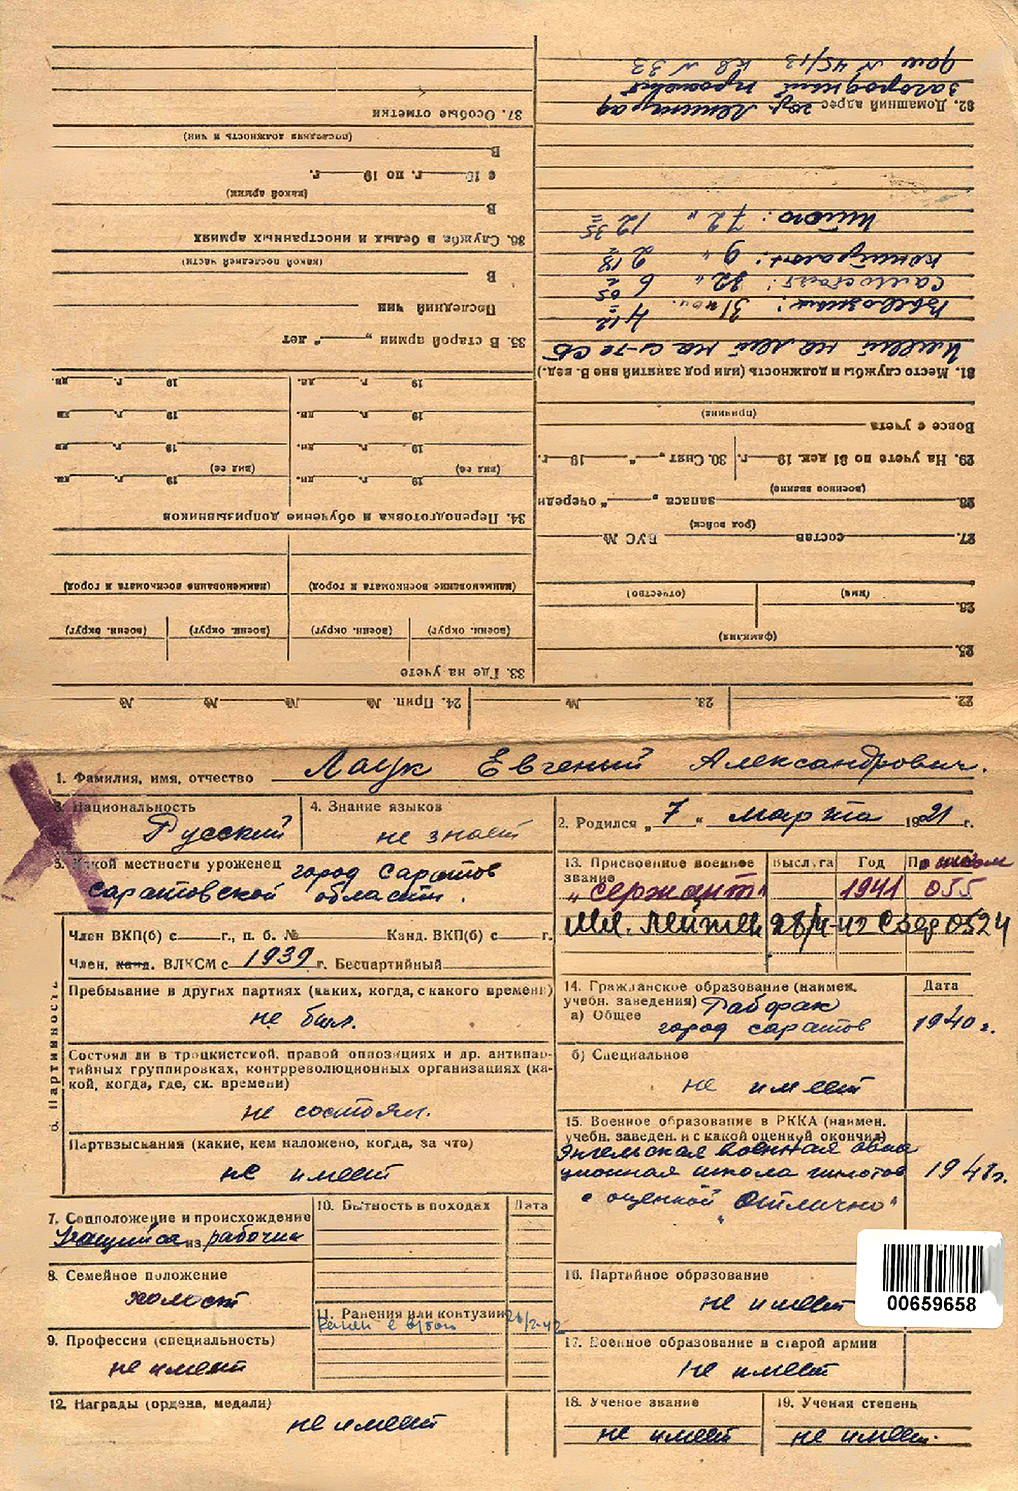 1. Фамилия, имя, отчество Лаук Евгений Александрович.
3. Национальность Русский
4. Знание языков не знает
2. Родился „7“ марта 1921 г.
5. Какой местности уроженец город Саратов
Саратовской области.
Член ВКП(б) с г., п. б. № Канд. ВКП(б) с г.
Член, канд. ВЛКСМ с 1939 г. Беспартийный
6. Партийность
Пребывание в других партиях (каких, когда, с какого времени)
не был.
Состоял ли в троцкистской, правой оппозициях и др. антипар-
тийных группировках, контрреволюционных организациях (ка-
кой, когда, где, ск. времени)
не состоял.
Партвзыскания (какие, кем наложено, когда, за что)
не имеет
7. Соцположение и происхождение
Учащийся из рабочих
8. Семейное положение
холост
9. Профессия (специальность)
не имеет
10. Бытность в походах Дата
11. Ранения или контузии
26/2-42
12. Награды (ордена, медали)
не имеет
13. Присвоенное военное звание Высл. га Год
„сержант“ 1941 055
Мл. лейтен 0524
14. Гражданское образование (наимен.
учебн. заведения) Рабфак Дата
а) Общее город Саратов 1940 г.
б) Специальное
не имеет
15. Военное образование в РККА (наимен.
учебн. заведен. и с какой оценкой окончил)
Энгельская военная авиа
ционная школа пилотов 1941 г.
с оценкой „Отлично“
16. Партийное образование
не имеет
00659658
17. Военное образование в старой армии
не имеет
18. Ученое звание
не имеет
19. Ученая степень
не имеет.
22. 23. № 24. Прип. № № № №
25.
(фамилия)
26.
(имя) (отчество)
27. состав ВУС №
(род войск)
28. запаса „ “ очереди
(военное звание)
29. На учете по 31 дек. 19 г. 30. Снят „ “ 19 г.
Вовсе с учета
(причина)
31. Место службы и должность (или род занятий вне В. вед.).
Имеет налет на с-те СБ
Вывозных: 31 пол. 4 12
Самостоят: 32 " 6 05
контрольн: 9 " 2 18
Итого: 72 " 12 35
32. Домашний адрес гор. Ленинград
Загородный проспект
дом N 45/13 кв N 33
33. Где на учете
(военн. округ) (военн. округ) (военн. округ) (военн. округ)
(наименование военкомата и город) (наименование военкомата и город)
34. Переподготовка и обучение допризывников
(вид ее) 19 г. дн. (вид ее) 19 г. дн.
19 г. дн. 19 г. дн.
19 г. дн. 19 г. дн.
19 г. дн. 19 г. дн.
35. В старой армии „ “ лет
Последний чин
В
(какой последней части)
36. Служба в белых и иностранных армиях
В
(какой армии)
с 19 г. по 19 г.
В
(последняя должность и чин)
37. Особые отметки